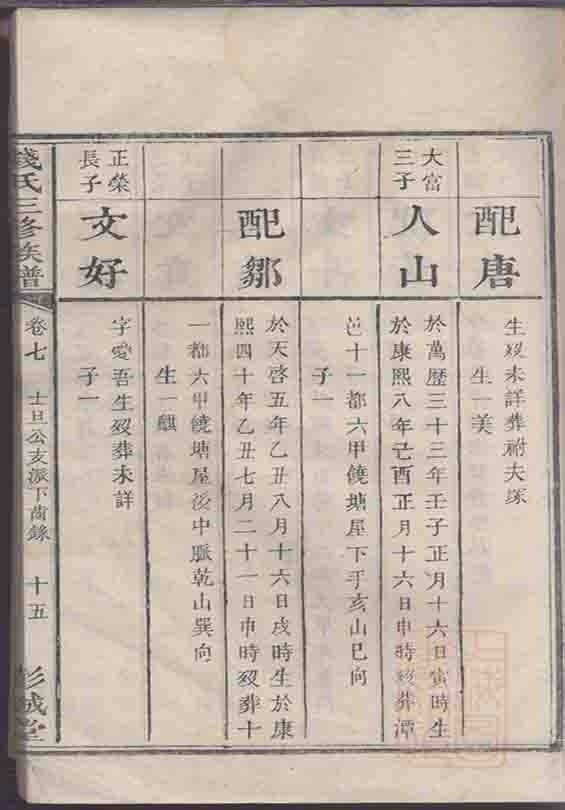 配唐
生歿未詳葬祔夫塚
生一美
大富
三子
人山
於萬歷三十三年壬子正月十六日寅時生
於康熙八年己酉正月十六日申時歿葬潭
邑十一都六甲饒塘屋下手亥山巳向
子一
配鄒
於天啓五年乙丑八月十六日戌時生於康
熙四十年乙丑七月二十一日申時歿葬十
一都六甲饒塘屋後中脈乾山巽向
生一麒
正榮
長子
文好
字愛吾生歿葬未詳
子一
錢氏三修族譜
卷七
士旦公支派下齒錄
十五
彭城堂